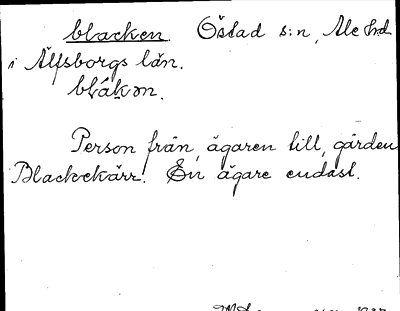 blacken Östad s:n, Ale hd
i Älfsborgs län.
blákən.
Person från, ägaren till, gården
Blackekärr. En ägare endast.